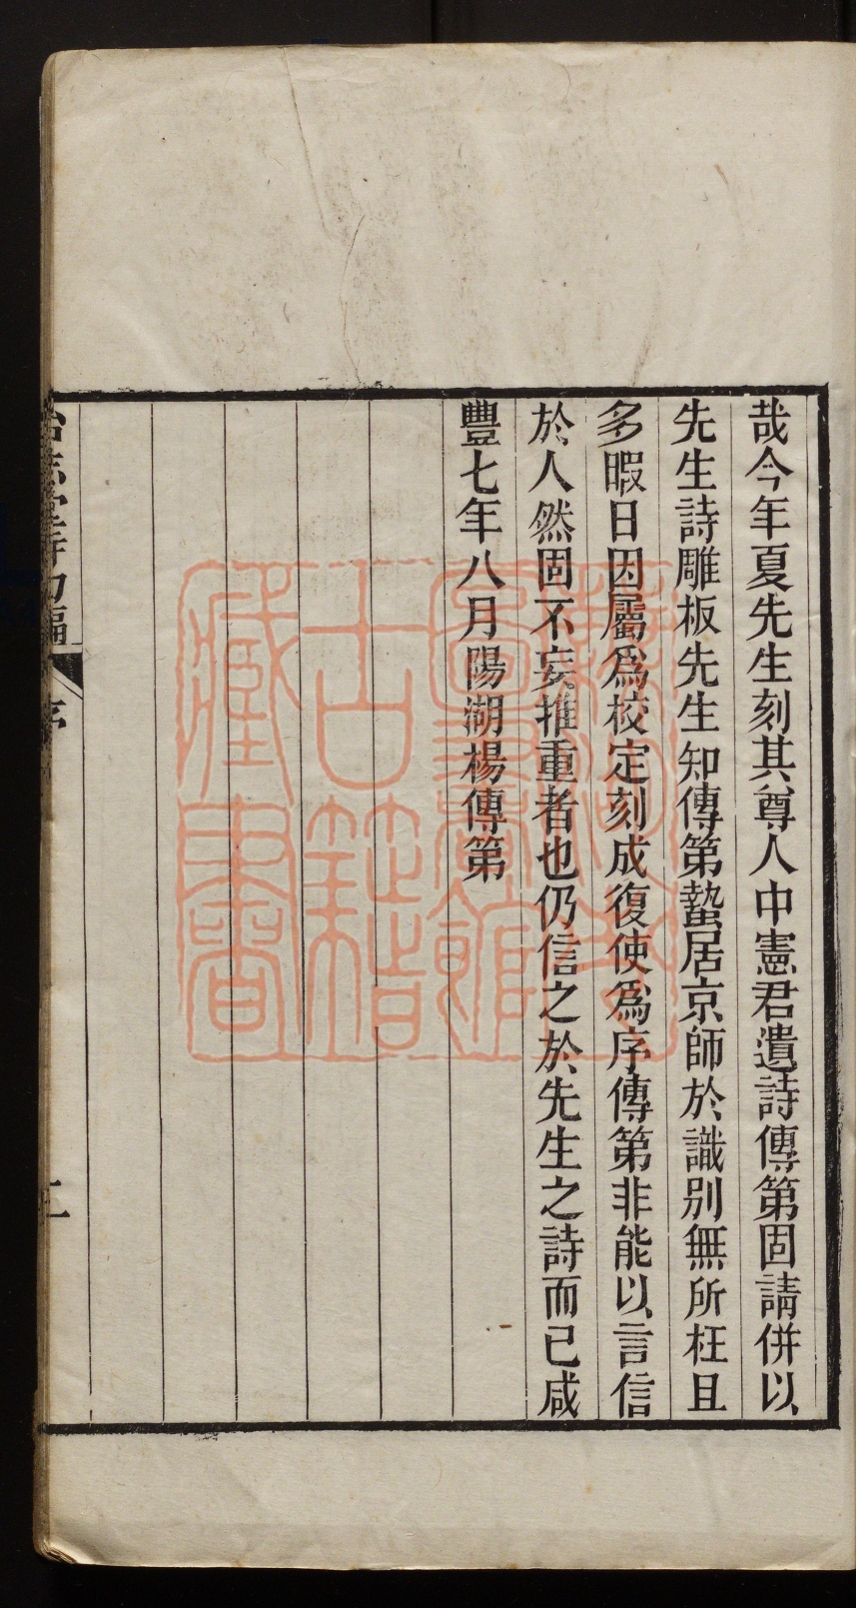 哉今年夏先生刻其尊人中憲君遺詩傳第固請併以
先生詩雕板先生知傳第蟄居京師於識別無所枉且
多暇日因屬爲校定刻成復使爲序傳第非能以言信
於人然固不妄推重者也仍信之於先生之詩而已咸
豐七年八月陽湖楊傳第
序
二
古籍
藏書